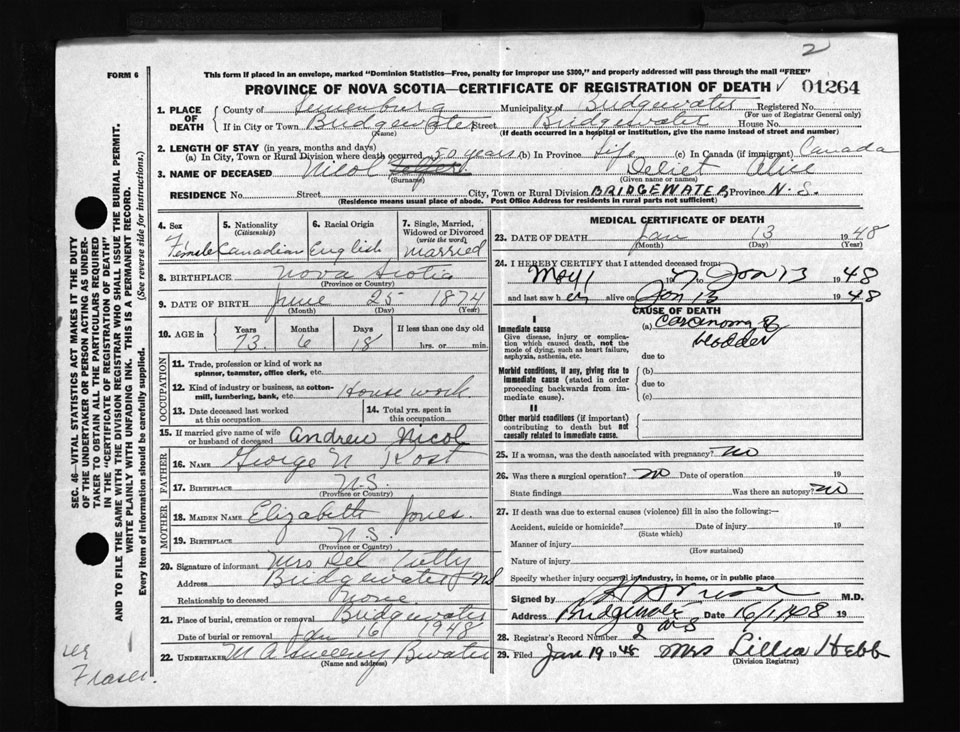 2
FORM 6
This form if placed in an envelope, marked "Dominion Statistics—Free, penalty for improper use $300," and properly addressed will pass through the mail "FREE"
PROVINCE OF NOVA SCOTIA—CERTIFICATE OF REGISTRATION OF DEATH ✓ 01264
1. PLACE OF DEATH County of Lunenburg Municipality of Bridgewater Registered No.
(For use of Registrar General only)
If in City or Town Bridgewater Street Bridgewater House No.
(Name) (If death occurred in a hospital or institution, give the name instead of street and number)
2. LENGTH OF STAY (in years, months and days)
(a) In City, Town or Rural Division where death occurred 50 years (b) In Province Life (c) In Canada (if immigrant) Canada
3. NAME OF DECEASED Nicol Alice
(Surname) (Given name or names)
RESIDENCE No. Street City, Town or Rural Division BRIDGEWATER, Province N.S.
(Residence means usual place of abode. Post Office Address for residents in rural parts not sufficient)
SEC. 46—VITAL STATISTICS ACT MAKES IT THE DUTY
OF THE UNDERTAKER OR PERSON ACTING AS UNDER-
TAKER TO OBTAIN ALL THE PARTICULARS REQUIRED
IN THE "CERTIFICATE OF REGISTRATION OF DEATH"
AND TO FILE THE SAME WITH THE DIVISION REGISTRAR WHO SHALL ISSUE THE BURIAL PERMIT.
WRITE PLAINLY WITH UNFADING INK. THIS IS A PERMANENT RECORD.
Every item of information should be carefully supplied. (See reverse side for instructions.)
4. Sex Female
5. Nationality (Citizenship) Canadian
6. Racial Origin English
7. Single, Married, Widowed or Divorced (write the word) Married
8. BIRTHPLACE Nova Scotia
(Province or Country)
9. DATE OF BIRTH June 25 1874
(Month) (Day) (Year)
10. AGE in Years 73 Months 6 Days 18 If less than one day old hrs. or min.
OCCUPATION
11. Trade, profession or kind of work as spinner, teamster, office clerk, etc.
12. Kind of industry or business, as cotton-mill, lumbering, bank, etc. House work
13. Date deceased last worked at this occupation
14. Total yrs. spent in this occupation
15. If married give name of wife or husband of deceased Andrew Nicol
FATHER
16. NAME George N Rost
17. BIRTHPLACE N.S.
(Province or Country)
MOTHER
18. MAIDEN NAME Elizabeth Jones
19. BIRTHPLACE N.S.
(Province or Country)
20. Signature of informant Mrs Del
Address Bridgewater NS
Relationship to deceased None
21. Place of burial, cremation or removal Bridgewater
Date of burial or removal Jan 16 1948
22. UNDERTAKER M A Sweeny Bwater
(Name and address)
Fraser.
MEDICAL CERTIFICATE OF DEATH
23. DATE OF DEATH Jan 13 1948
(Month) (Day) (Year)
24. I HEREBY CERTIFY that I attended deceased from:
May 1 1947 Jan 13 1948
and last saw her alive on Jan 13 1948
CAUSE OF DEATH
I
Immediate cause (a) Carcinoma of bladder
Give disease, injury or complication which caused death, not the mode of dying, such as heart failure, asphyxia, asthenia, etc.
due to
Morbid conditions, if any, giving rise to immediate cause (stated in order proceeding backwards from immediate cause). (b)
due to
(c)
II
Other morbid conditions (if important) contributing to death but not causally related to immediate cause.
25. If a woman, was the death associated with pregnancy? no
26. Was there a surgical operation? no Date of operation 19
State findings Was there an autopsy? no
27. If death was due to external causes (violence) fill in also the following:—
Accident, suicide or homicide? Date of injury 19
(State which)
Manner of injury
(How sustained)
Nature of injury
Specify whether injury occurred in industry, in home, or in public place
Signed by M.D.
Address Bridgewater Date 16/1/48 19
28. Registrar's Record Number
29. Filed Jan 19 1948 Mrs Lillia Hebb
(Division Registrar)